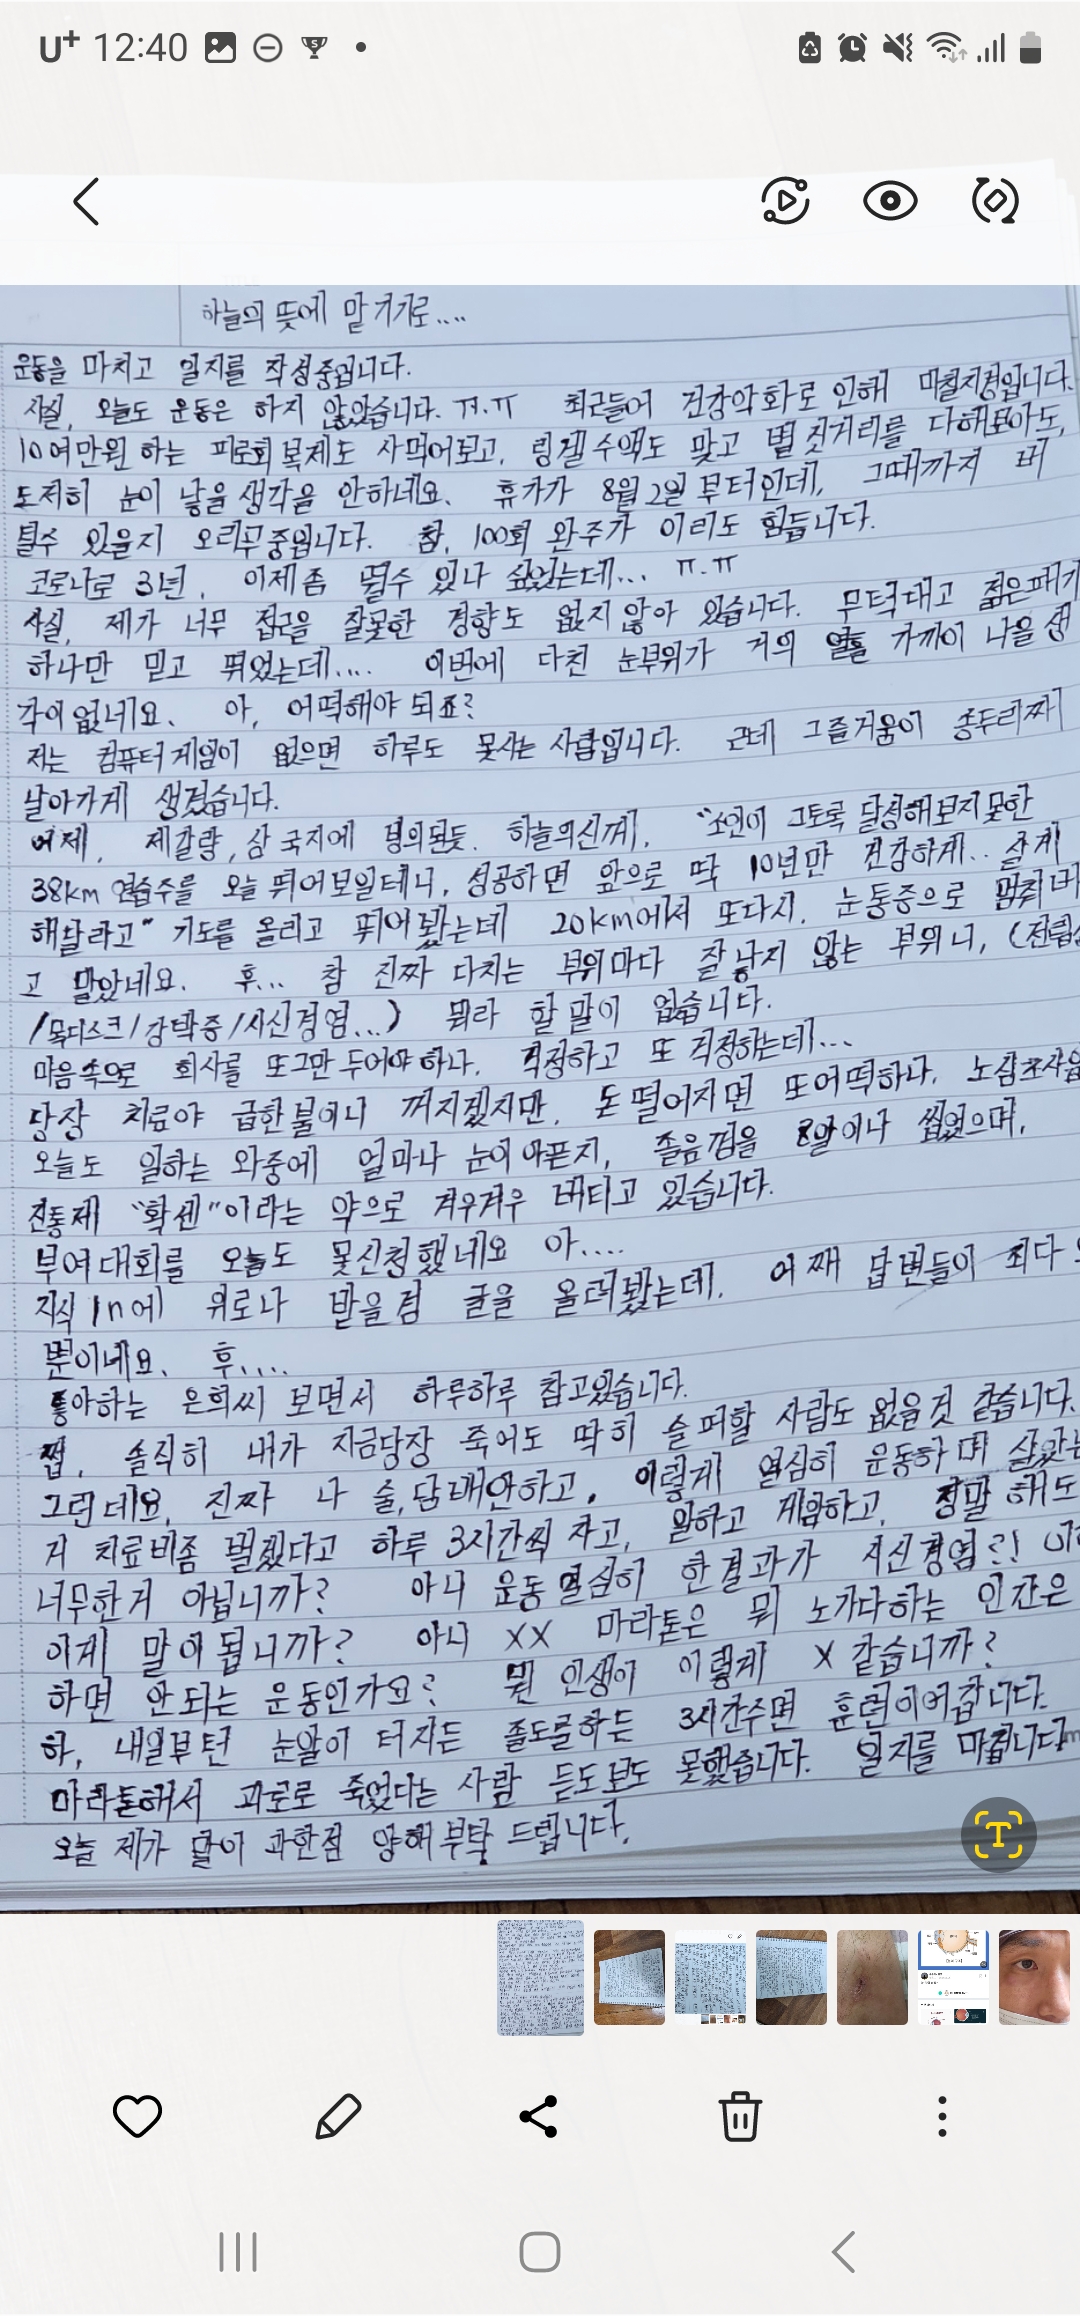 U+ 12:40
하늘의 뜻에 맡기기로....
운동을 마치고 일지를 작성중입니다.
사실, 오늘도 운동은 하지 않았습니다. ㅠ.ㅠ 최근들어 건강악화로 인해 미칠지경입니다.
10여만원 하는 피로회복제도 사먹어보고, 링겔 수액도 맞고 별 짓거리를 다해보아도,
도저히 눈이 낳을 생각을 안하네요. 휴가가 8월 2일 부터인데, 그때까지 버
틸수 있을지 오리무중입니다. 참, 100회 완주가 이리도 힘듭니다.
코로나로 3년, 이제좀 뛸수 있나 싶었는데... ㅠ.ㅠ
사실, 제가 너무 접근을 잘못한 경향도 없지않아 있습니다. 무턱대고 젊은패기
하나만 믿고 뛰었는데.... 이번에 다친 눈부위가 거의 열흘 가까이 나을 생
각이없네요. 아, 어떡해야 되죠?
저는 컴퓨터게임이 없으면 하루도 못사는 사람입니다. 근데 그즐거움이 송두리째
날아가게 생겼습니다.
어제, 제갈량, 삼국지에 빙의된듯. 하늘의신께, "소인이 그토록 달성해보지못한
38km 연습주를 오늘 뛰어보일테니, 성공하면 앞으로 딱 10년만 건강하게.. 살게
해달라고" 기도를 올리고 뛰어봤는데 20km에서 또다시, 눈통증으로 멈춰버
고 말았네요. 후... 참 진짜 다치는 부위마다 잘 낳지 않는 부위니, (전립선
/목디스크/강박증/시신경염...) 뭐라 할말이 없습니다.
마음속으로 회사를 또그만두어야하나, 걱정하고 또 걱정하는데...
당장 치료야 급한불이니 꺼지겠지만, 돈떨어지면 또어떡하나, 노심초사
오늘도 일하는 와중에 얼마나 눈이아픈지, 졸음껌을 8알이나 씹었으며,
진통제 "확센"이라는 약으로 겨우겨우 버티고 있습니다.
부여대회를 오늘도 못신청했네요 아....
지식in에 위로나 받을겸 글을 올려봤는데, 어째 답변들이 죄다
뿐이네요. 후....
좋아하는 은희씨 보면서 하루하루 참고있습니다.
쩝, 솔직히 내가 지금당장 죽어도 딱히 슬퍼할 사람도 없을것 같습니다.
그런데요, 진짜 나 술,담배안하고, 이렇게 열심히 운동하며 살았는
거 치료비좀 벌겠다고 하루 3시간씩 자고, 일하고 게임하고, 정말 해도
너무한거 아닙니까? 아니 운동 열심히 한결과가 시신경염?!
이게 말이됩니까? 아니 XX 마라톤은 뭐 노가다하는 인간은
하면 안되는 운동인가요? 뭔 인생이 이렇게 X 같습니까?
하, 내일부턴 눈알이 터지든 졸도를하든 3시간주면 훈련이어갑니다.
마라톤해서 과로로 죽었다는 사람 듣도보도 못했습니다. 일지를 마칩니다
오늘 제가 말이 과한점 양해부탁 드립니다.